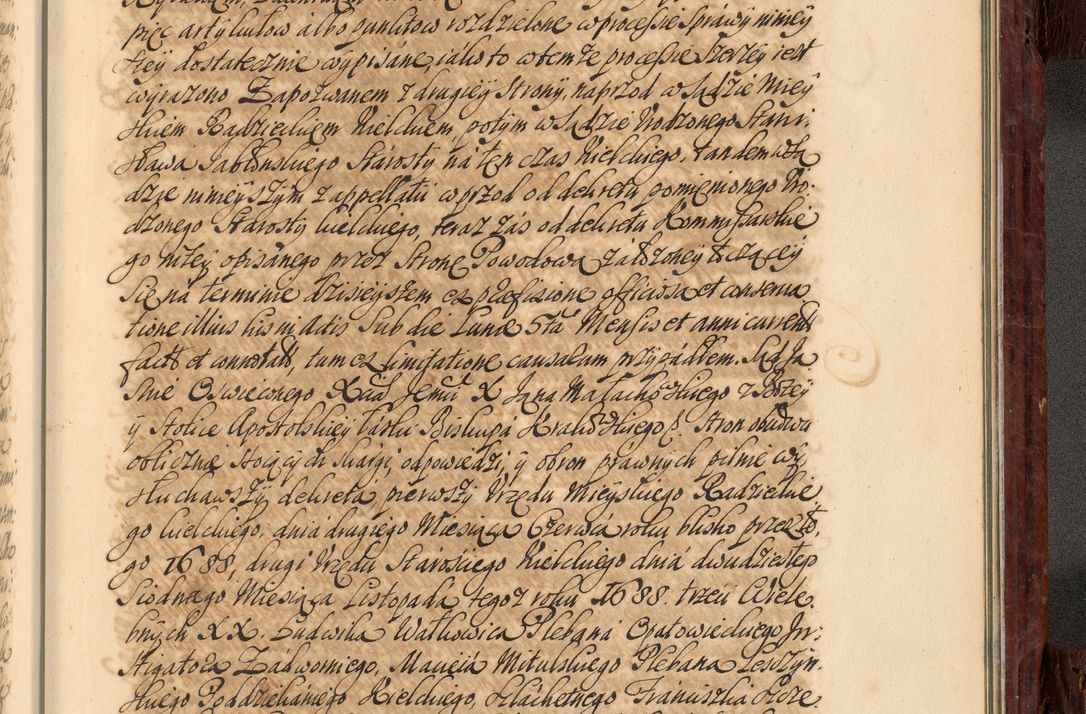 pięć artykułów albo punktów rozdzielone w processie sprawy niniey
szey dostatecznie wypisane, iako to w temże processie szerzey iest
wyrazono Zapozwanem z drugiey strony, naprzod w Sądzie Miey
skiem Radzieckiem Kielckiem, potym w Sądzie Urodzonego Stani,
sława Jabłonskiego Starosty na ten czas Kielckiego, tandem w Są
dzie ninieyszym z appellatii w przod od dekretu pomienionego Uro,
dzonego Starosty kielckiego, teraz zás od dekretu Kommissarskie
go niżey opisánego przez Stronę Powodową záłożoney toczącey
się ná terminie dzisieyszem ex praefixione officiosa et conserua
tione illius his in Actis sub die Lunae 5ta Mensis et anni currentt
factt et connotatt, tum ex limitatione causarum przypádłem. Sąd Ja
snie Oswieconego Xcia Jemci X Jana Małachowskiego z Bożey
y Stolice Apostolskiey łaski Biskupá Krakowskiego &. Stron obudwu
oblicznie stoiących skargi, odpowiedzi, y obron prawnych pilnie wy,
słuchawszy, dekreta, pierwszy Urzędu Mieyskiego Radzieckie,
go kielckiego, dnia drugiego Miesiąca Czerwca roku blisko przeszłe,
go 1688, drugi Urzędu Stárosciego Kielckiego dniá dwudziestego
Siodmego Miesiąca Listopada tegoz roku 1688. trzeci Wiele,
bnych XX. Ludwika Watkowica Plebaná Opatowieckiego In,
stigatora Zádwornego, Macieiá Mitulskiego Plebana Leszczyn
skiego Poddziekaniego Kielckiego, szlachetnego Fránciszka